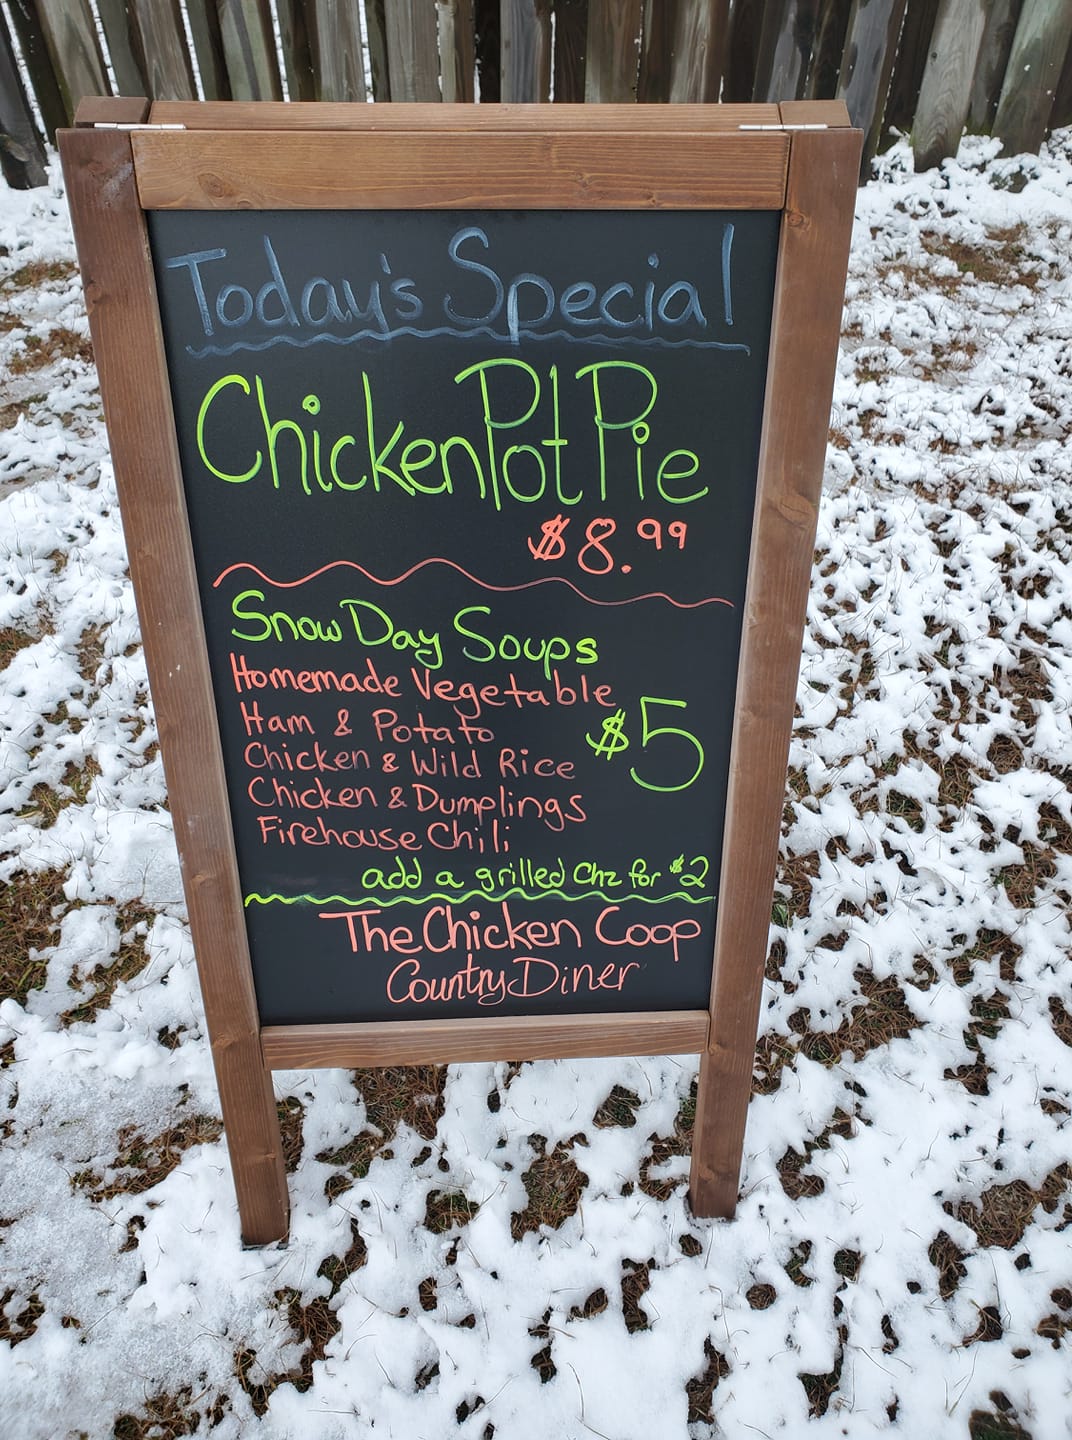 Today's Special
Chicken Pot Pie
$8.99
Snow Day Soups
Homemade Vegetable
Ham & Potato
$5
Chicken & Wild Rice
Chicken & Dumplings
Firehouse Chili
add a grilled Chz for $2
The Chicken Coop
Country Diner